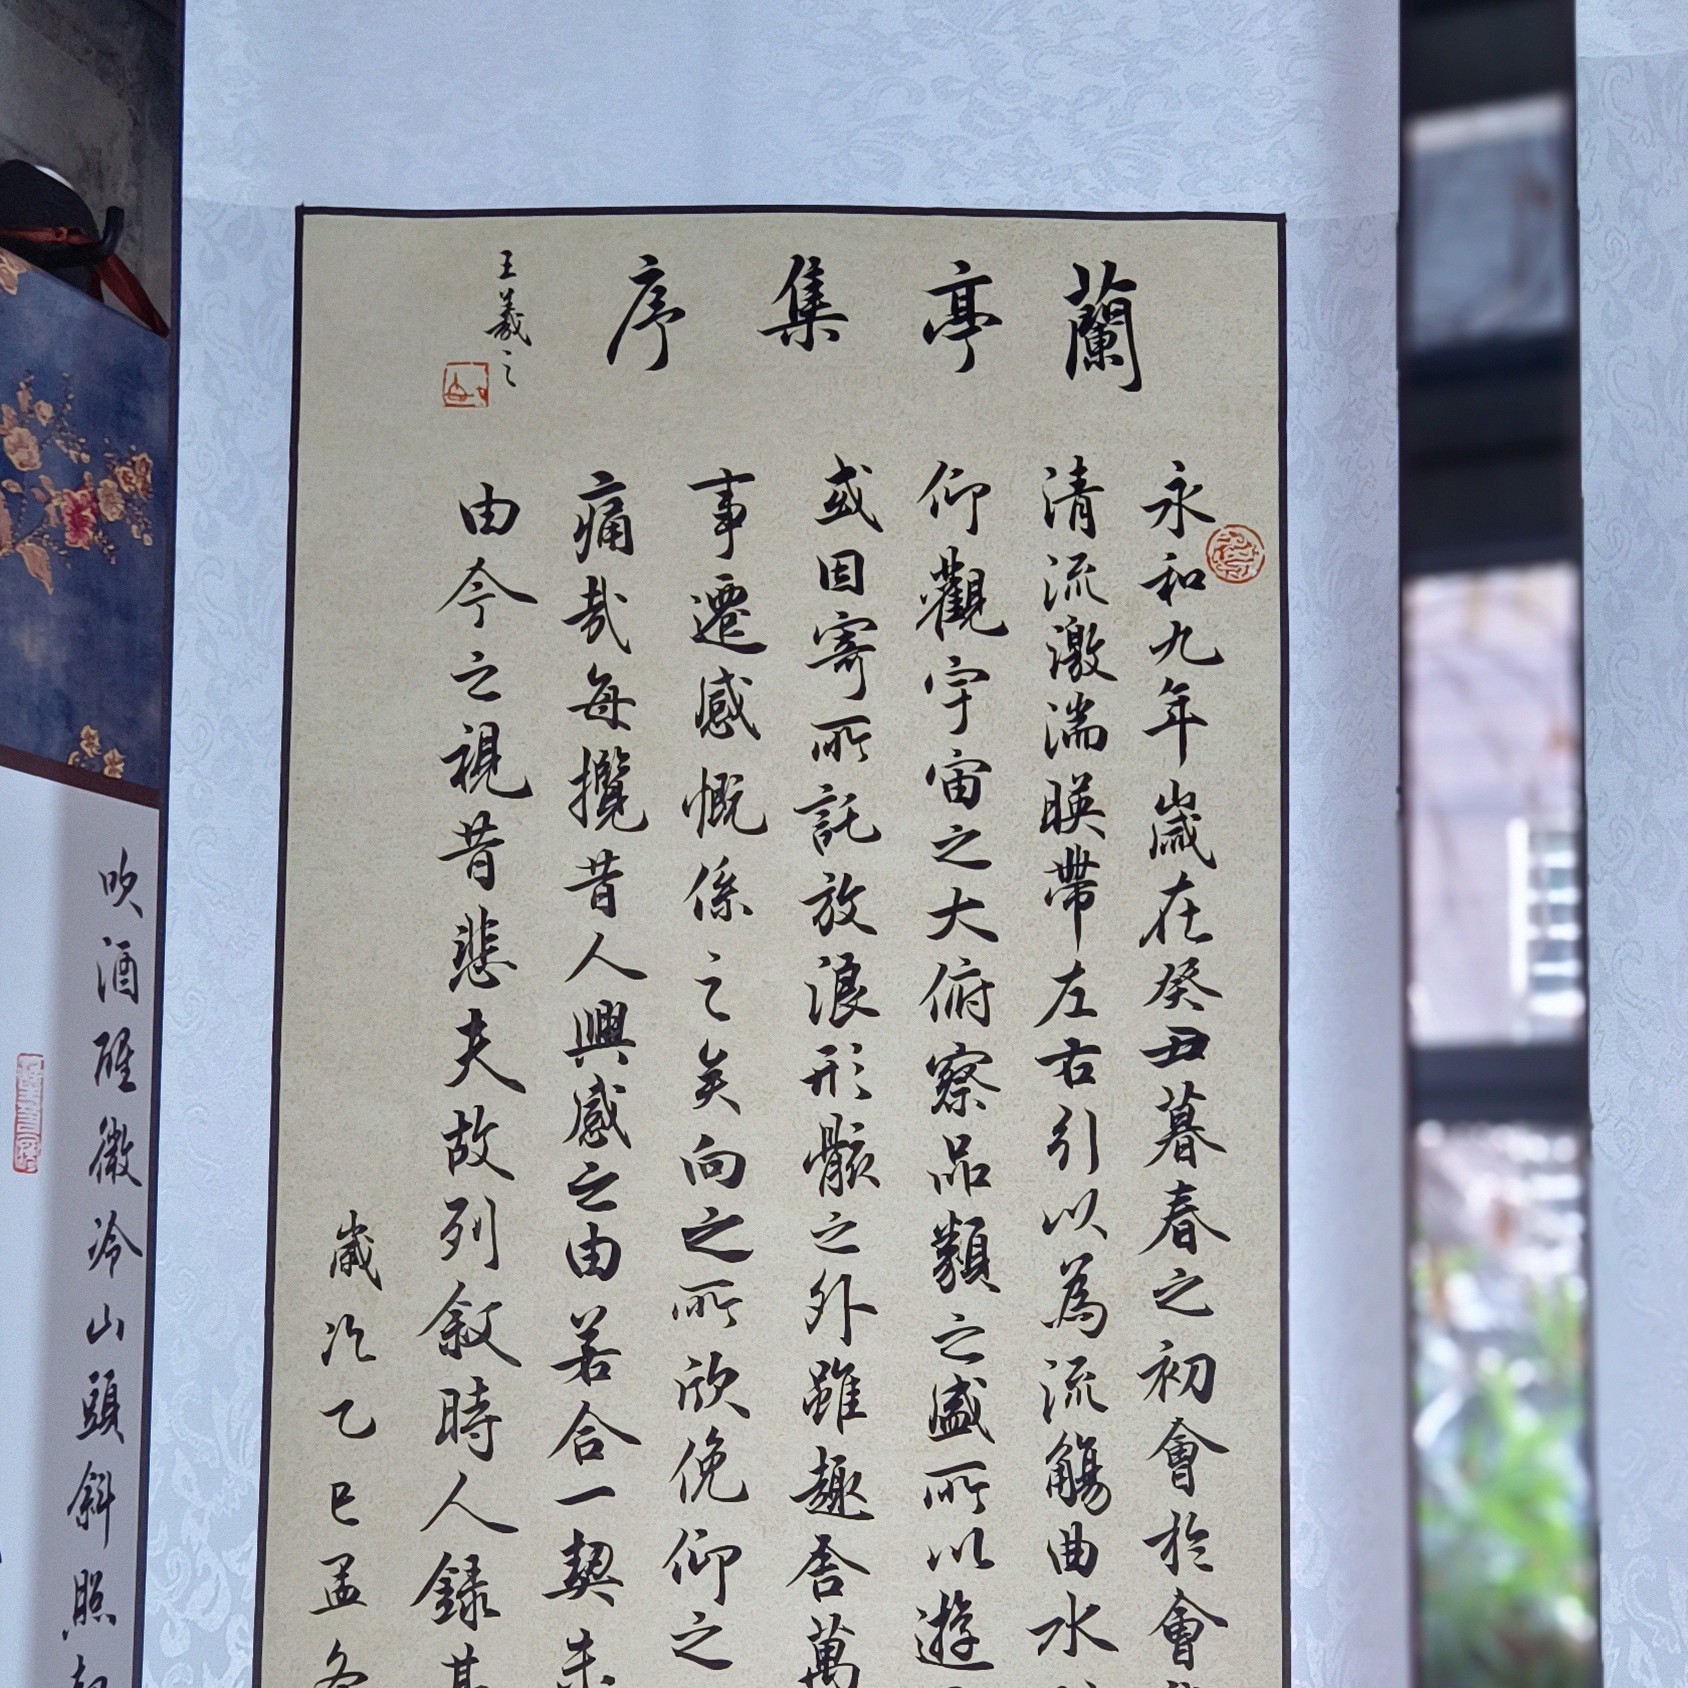 蘭亭集序
王羲之
永和九年歲在癸丑暮春之初會於會
清流激湍暎帶左右引以為流觴曲水
仰觀宇宙之大俯察品類之盛所以遊
或因寄所託放浪形骸之外雖趣舍萬
事遷感慨係之矣向之所欣俛仰之
痛哉每攬昔人興感之由若合一契未
由今之視昔悲夫故列敘時人錄其
歲次乙巳孟冬
吹酒醒微冷山頭斜照却